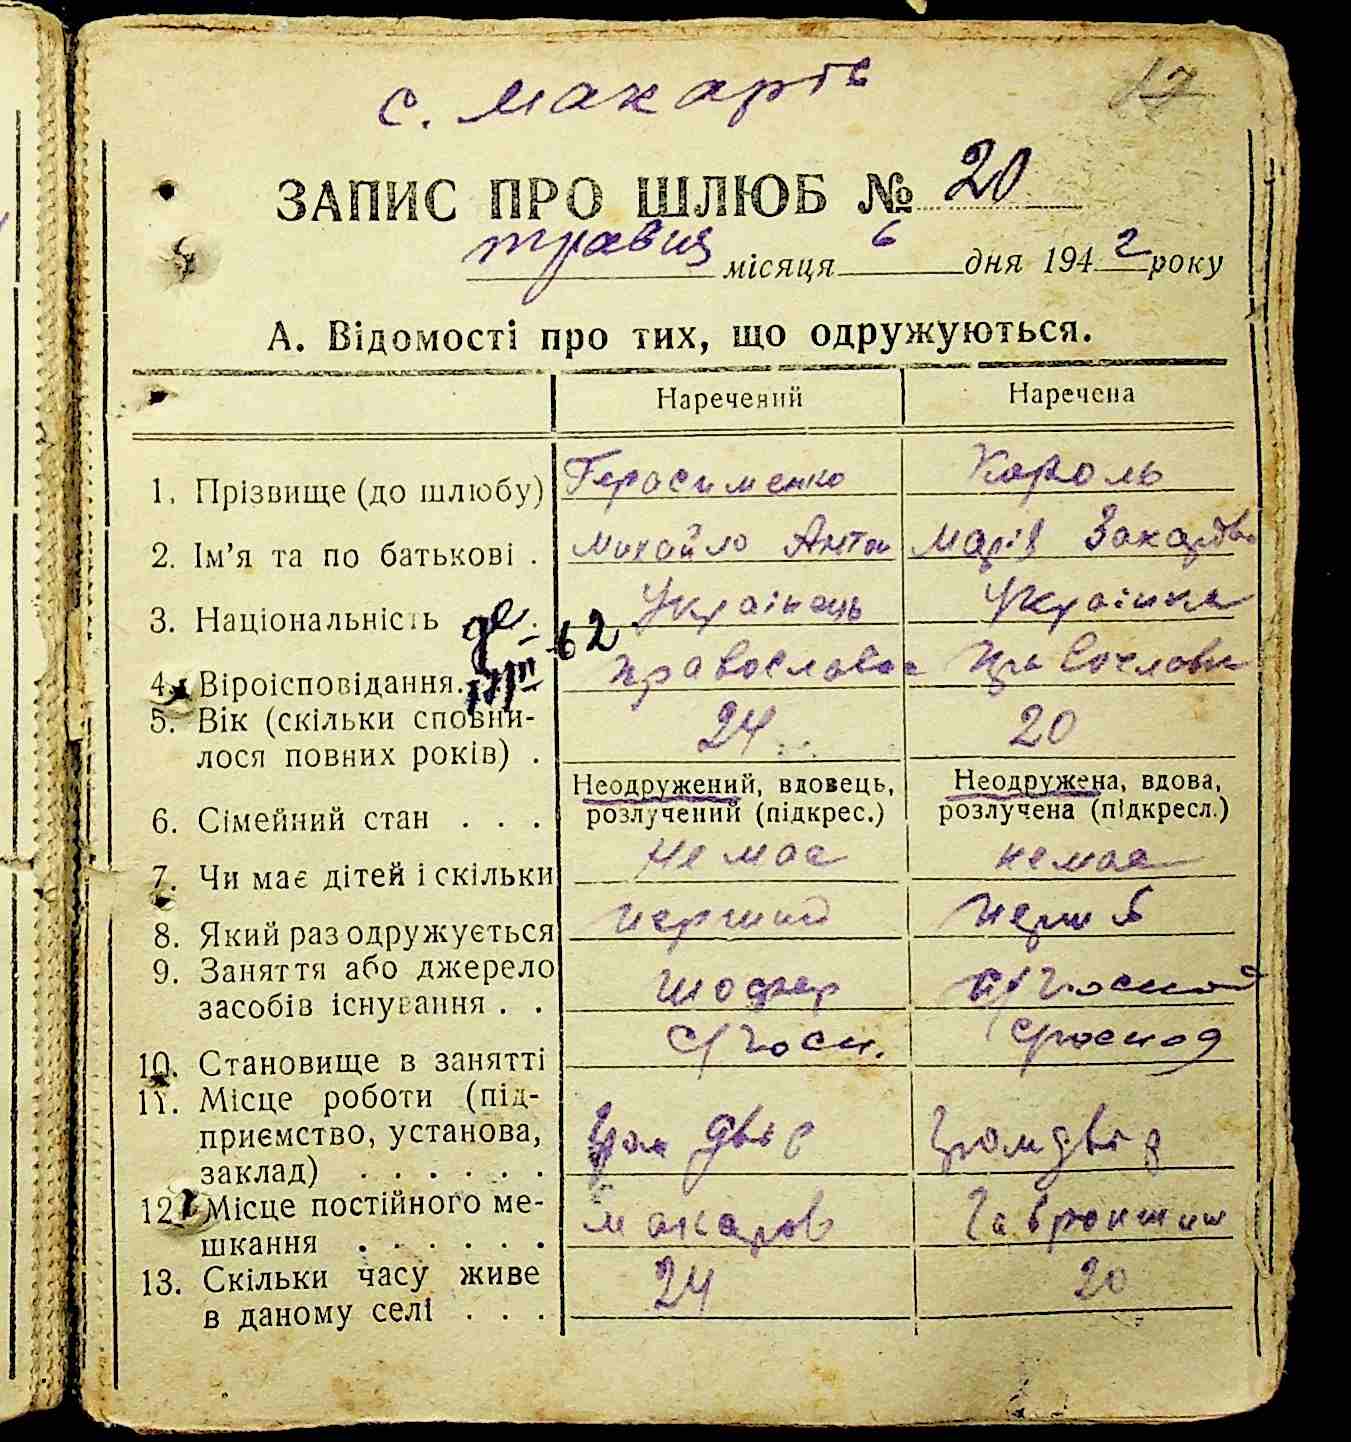 с. Макарів
17
ЗАПИС ПРО ШЛЮБ № 20
травня місяця 6 дня 1942 року
А. Відомості про тих, що одружуються.
Наречений Наречена
1. Прізвище (до шлюбу) Герасименко Король
2. Ім’я та по батькові . Михайло Антон Марія Захарівна
3. Національність . Українець Українка
4. Віроісповідання. Православне Православна
5. Вік (скільки сповни-
лося повних років) . 24 20
Неодружений, вдовець, Неодружена, вдова,
6. Сімейний стан . . . розлучений (підкрес.) розлучена (підкресл.)
7. Чи має дітей і скільки не має немає
8. Який раз одружується перший перший
9. Заняття або джерело
засобів існування . . шофер с/господ
10. Становище в занятті с/госп. с/господ
11. Місце роботи (під-
приємство, установа,
заклад) . . . . . . Гром двір Громдвір
12. Місце постійного ме-
шкання . . . . . . Макаров Гавронщин
13. Скільки часу живе
в даному селі . . . 24 20